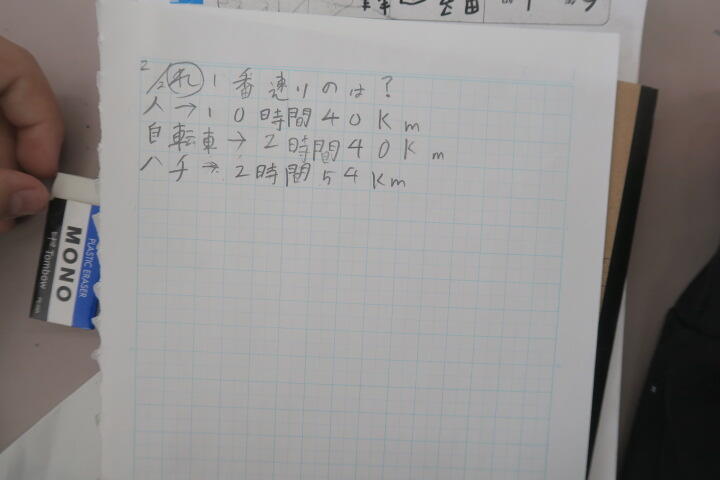 2/2 れ 1番速いのは?
人→10時間40Km
自転車→2時間40Km
ハチ→2時間54Km
MONO
PLASTIC ERASER
Tombow